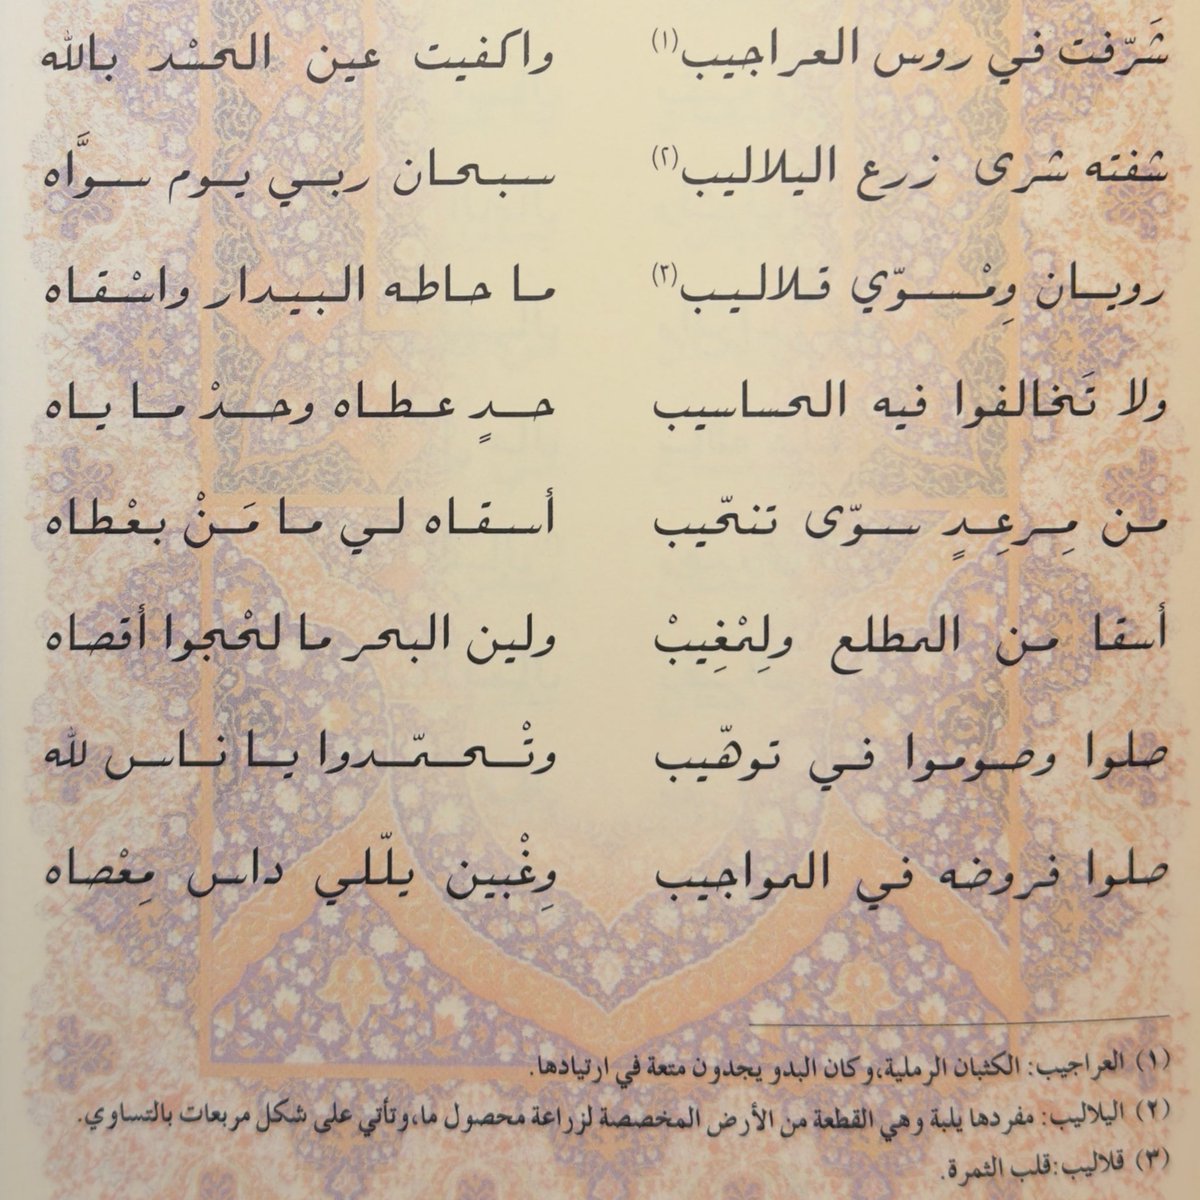 شَرّفت في روس العراجيب(١) واكفيت عين الحسْد بالله
شفته شرى زرع اليلاليب(٢) سبحان ربي يوم سوَّاه
رويان وِمْسوّي قلاليب(٣) ما حاطه البيدار واسْقاه
ولا تَخالفوا فيه الحساسيب حدٍ عطاه وحدْ ما ياه
من مِرعِدٍ سوّى تنحّيب أسقاه لي ما مَنْ بعْطاه
أسقا من المطلع ولِمْغِيبْ ولين البحر ما لحْجوا أقصاه
صلوا وصوموا في توهّيب وتْحمّدوا يا ناس لله
صلوا فروضه في المواجيب وِغْبين يللّي داس مِعْصاه
(١) العراجيب: الكثبان الرملية،وكان البدو يجدون متعة في ارتيادها.
(٢) اليلاليب: مفردها يلبة وهي القطعة من الأرض المخصصة لزراعة محصول ما،وتأتي على شكل مربعات بالتساوي.
(٣) قلاليب:قلب الثمرة.